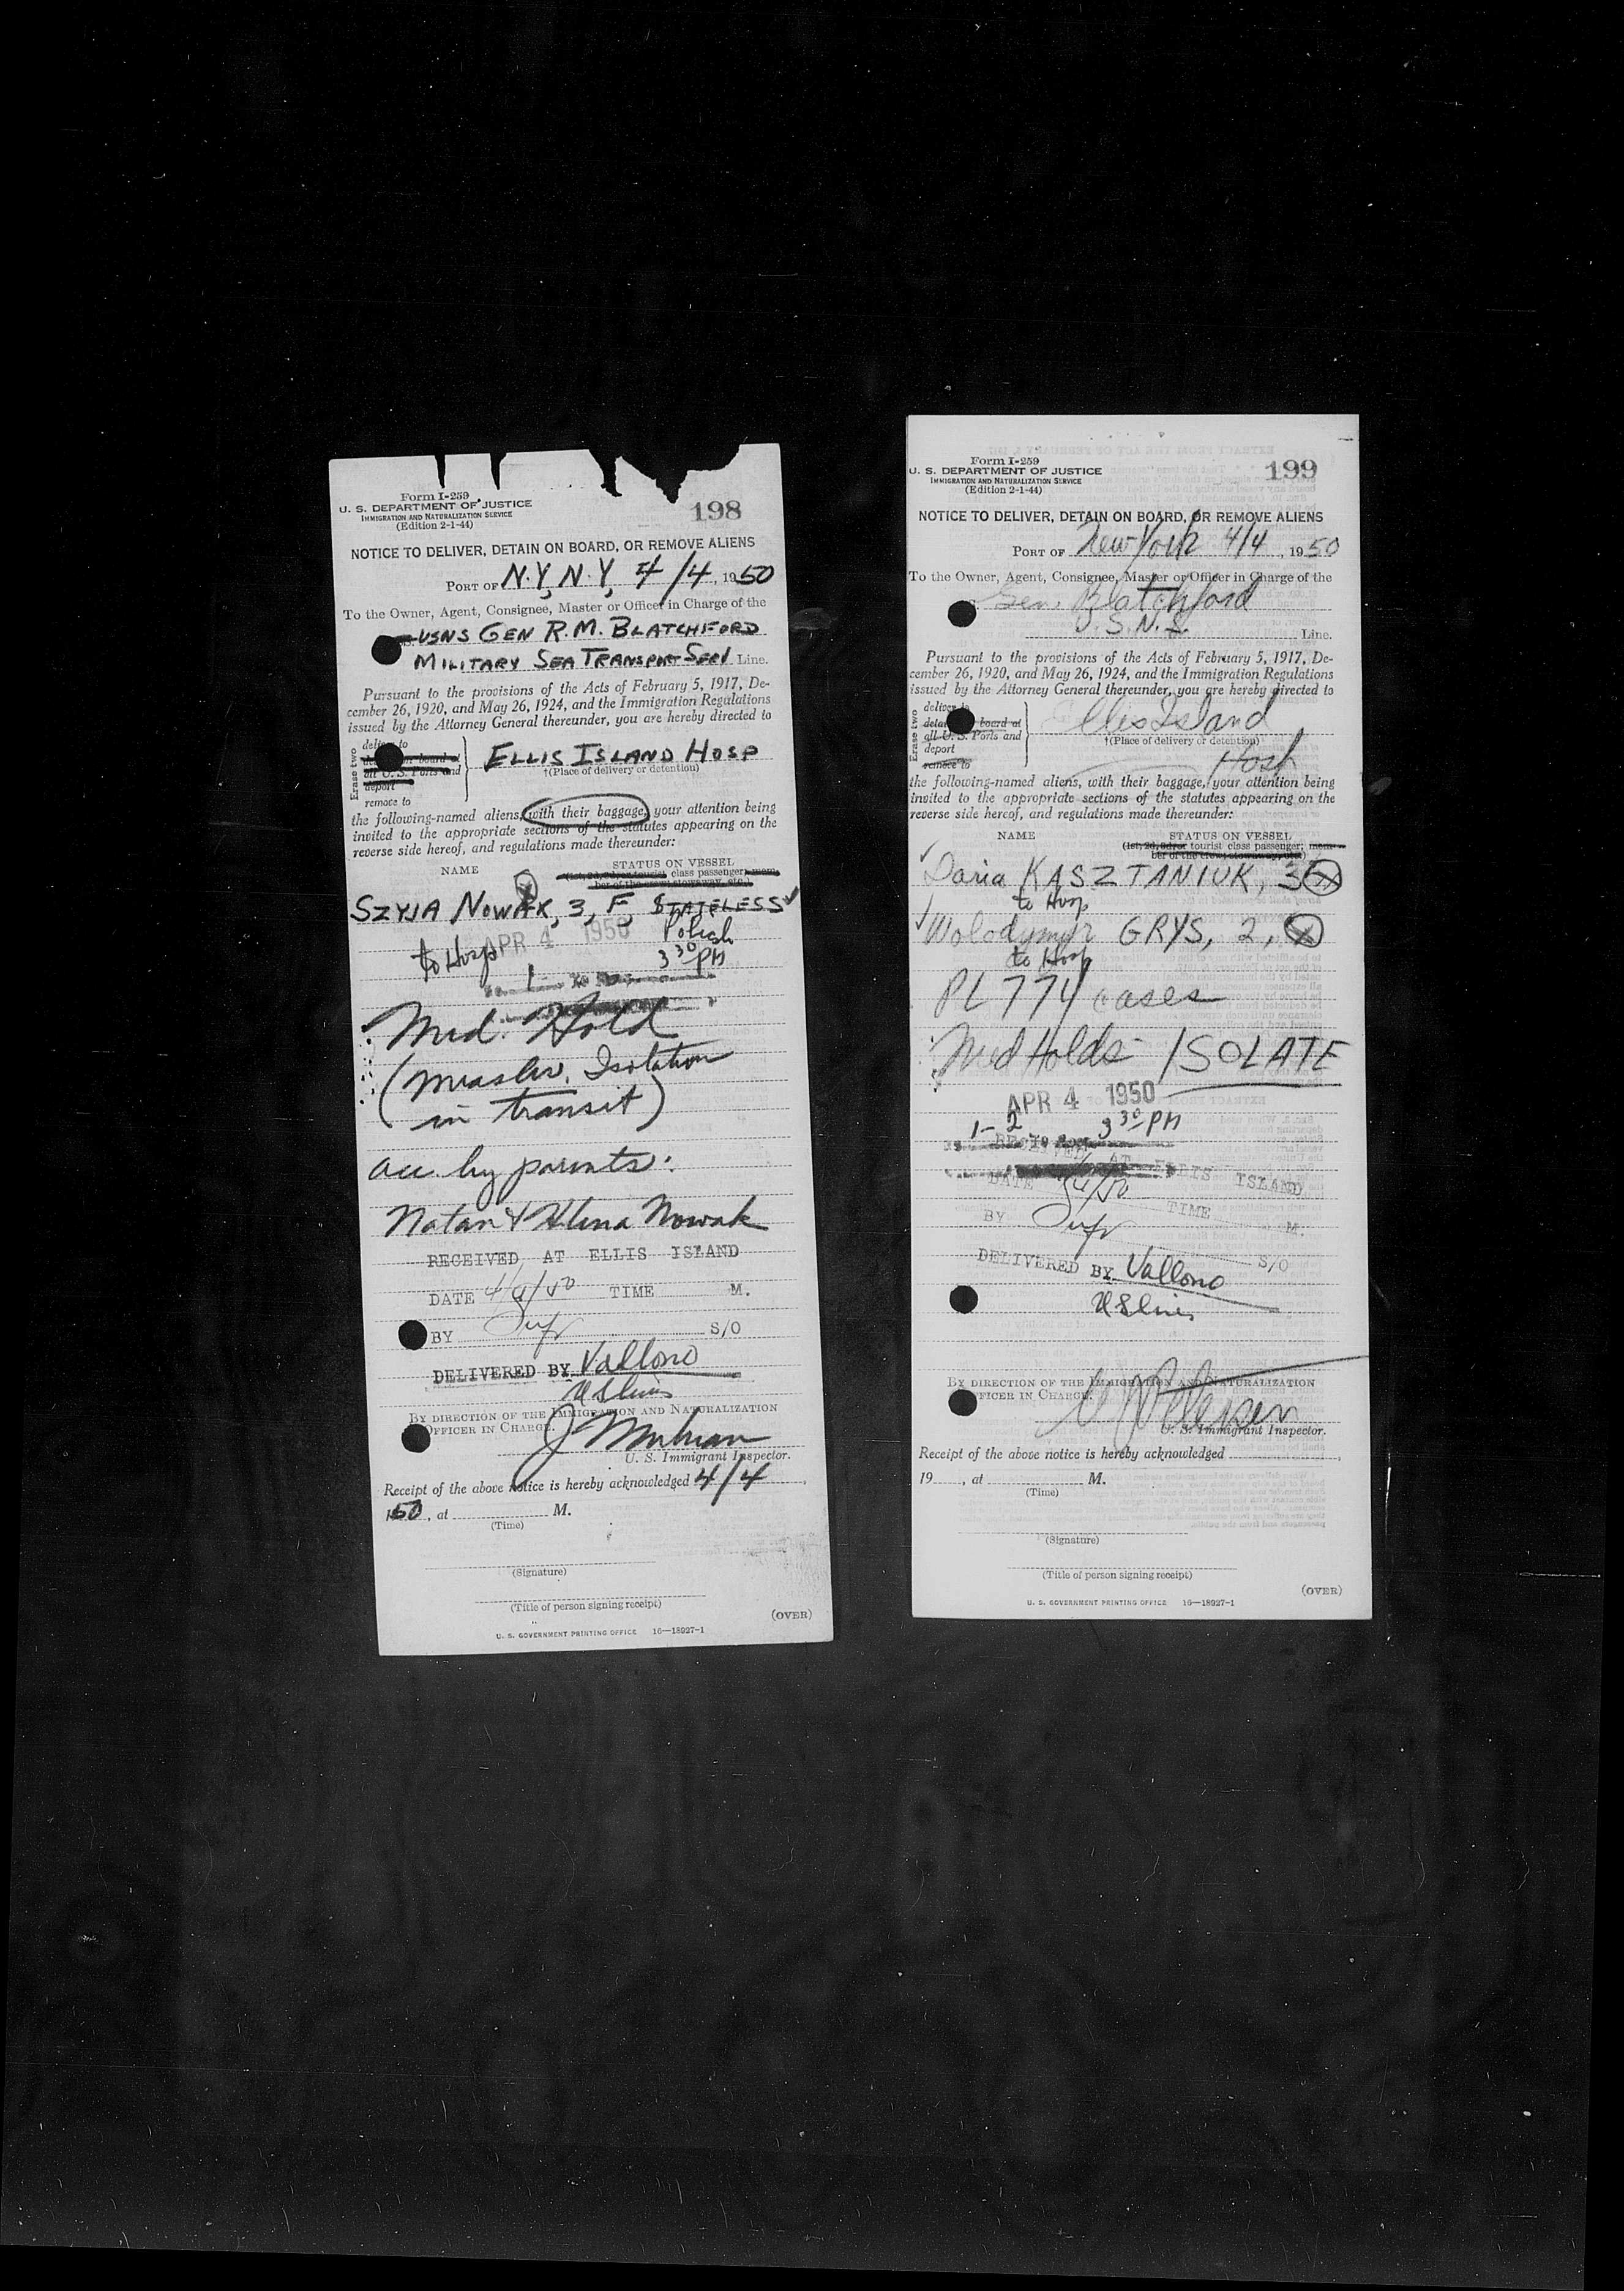 Form I-259
U. S. DEPARTMENT OF JUSTICE
IMMIGRATION AND NATURALIZATION SERVICE
(Edition 2-1-44)
198
NOTICE TO DELIVER, DETAIN ON BOARD, OR REMOVE ALIENS
PORT OF N.Y, N.Y, 4/4, 1950
To the Owner, Agent, Consignee, Master or Officer in Charge of the
USNS GEN R.M. BLATCHFORD
MILITARY SEA TRANSPORT SERV Line.
Pursuant to the provisions of the Acts of February 5, 1917, De-
cember 26, 1920, and May 26, 1924, and the Immigration Regulations
issued by the Attorney General thereunder, you are hereby directed to
Erase two
deliver to
or board at
all U. S. Ports and
deport
remove to
ELLIS ISLAND HOSP
†(Place of delivery or detention)
the following-named aliens, with their baggage, your attention being
invited to the appropriate sections of the statutes appearing on the
reverse side hereof, and regulations made thereunder:
NAME
STATUS ON VESSEL
(1st, 2d, 3d, or tourist class passenger; mem-
ber of the crew; stowaway, etc.)
SZYJA NOWAK, 3, F, STATELESS
Polish
to Hosp APR 4 1950
1 3 30 PM
Med. Hold
(Measles, Isolation
in transit)
acc. by parents:
Natan & Helena Nowak
RECEIVED AT ELLIS ISLAND
DATE 4/4/50 TIME M.
BY S/O
DELIVERED BY Vallono
US Lines
BY DIRECTION OF THE IMMIGRATION AND NATURALIZATION
OFFICER IN CHARGE.
U. S. Immigrant Inspector.
Receipt of the above notice is hereby acknowledged 4/4,
1950, at M.
(Time)
(Signature)
(Title of person signing receipt)
(OVER)
U. S. GOVERNMENT PRINTING OFFICE 16—18927-1
Form I-259
U. S. DEPARTMENT OF JUSTICE
IMMIGRATION AND NATURALIZATION SERVICE
(Edition 2-1-44)
199
NOTICE TO DELIVER, DETAIN ON BOARD, OR REMOVE ALIENS
PORT OF New York 4/4, 1950
To the Owner, Agent, Consignee, Master or Officer in Charge of the
Gen. Blatchford
U.S.N.S. Line.
Pursuant to the provisions of the Acts of February 5, 1917, De-
cember 26, 1920, and May 26, 1924, and the Immigration Regulations
issued by the Attorney General thereunder, you are hereby directed to
Erase two
deliver to
board at
all U. S. Ports and
deport
remove to
Ellis Island
†(Place of delivery or detention)
Hosp
the following-named aliens, with their baggage, your attention being
invited to the appropriate sections of the statutes appearing on the
reverse side hereof, and regulations made thereunder:
NAME
STATUS ON VESSEL
(1st, 2d, 3d, or tourist class passenger; mem-
ber of the crew; stowaway, etc.)
Daria KASZTANIUK, 3
to Hosp
Wolodymyr GRYS, 2,
to Hosp
PL 774 cases
Med Holds ISOLATE
APR 4 1950
1-2 3 30 PM
RECEIVED AT ELLIS ISLAND
DATE 4/4/50 TIME M.
BY S/O
DELIVERED BY Vallono
US Lines
BY DIRECTION OF THE IMMIGRATION AND NATURALIZATION
OFFICER IN CHARGE.
U. S. Immigrant Inspector.
Receipt of the above notice is hereby acknowledged ,
19 , at M.
(Time)
(Signature)
(Title of person signing receipt)
(OVER)
U. S. GOVERNMENT PRINTING OFFICE 16—18927-1